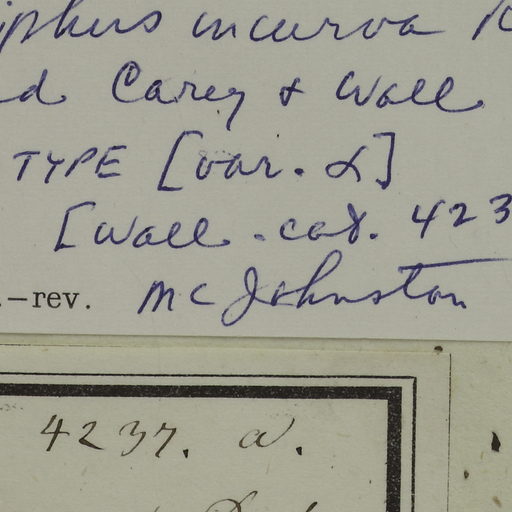 iphus incurva R
d Carey & Wall
TYPE [var. α]
[Wall. cat. 423
.—rev. MC Johnston
4237. a.